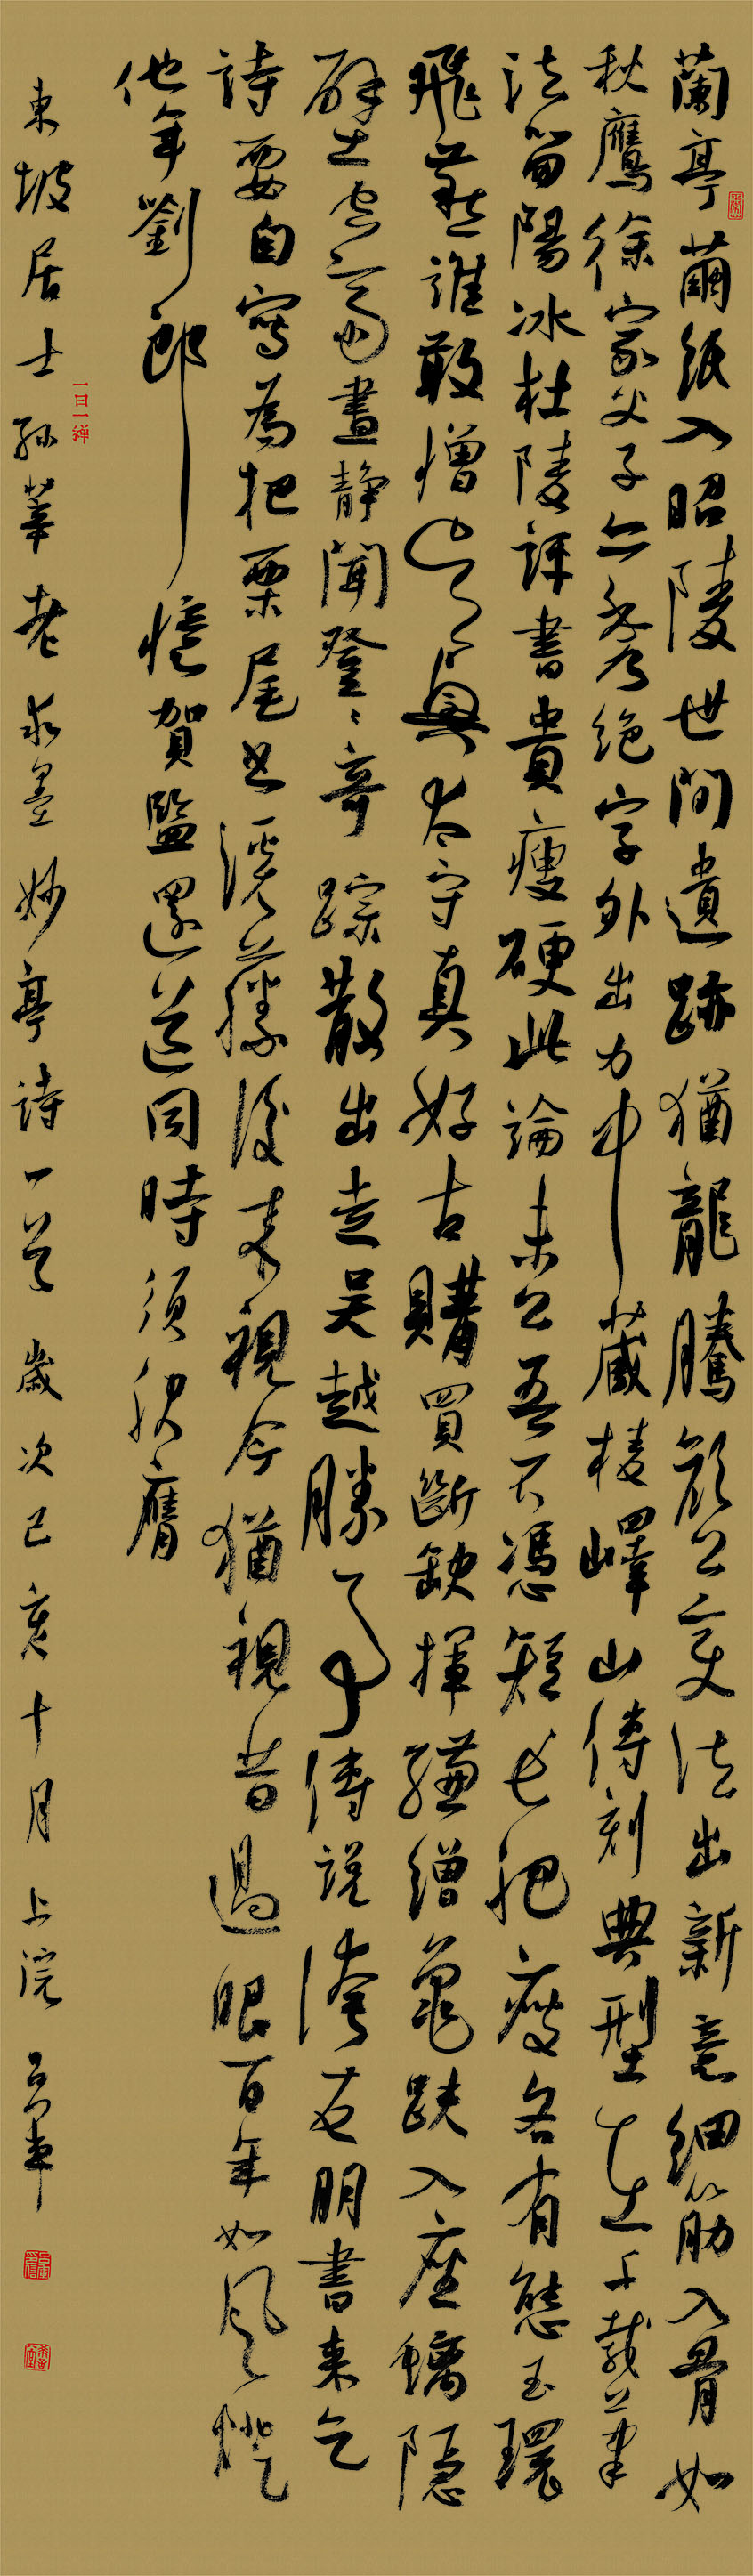 蘭亭繭紙入昭陵世間遺跡猶龍騰顏公變法出新意細筋入骨如
秋鷹徐家父子亦秀絕字外出力中藏棱嶧山傳刻典型在千載筆
法留陽冰杜陵評書貴瘦硬此論未公吾不憑短長肥瘦各有態玉環
飛燕誰敢憎吳興太守真好古購買斷缺揮縑繒龜趺入座螭隱
壁空齋晝靜聞登〻奇踪散出走吳越勝事傳說誇友朋書來乞
詩要自寫為把栗尾書溪藤後來視今猶視昔過眼百年如風燈
他年劉郎憶賀監還道同時須服膺
一日一禪
東坡居士孫莘老求墨妙亭詩一首歲次己亥十月上浣